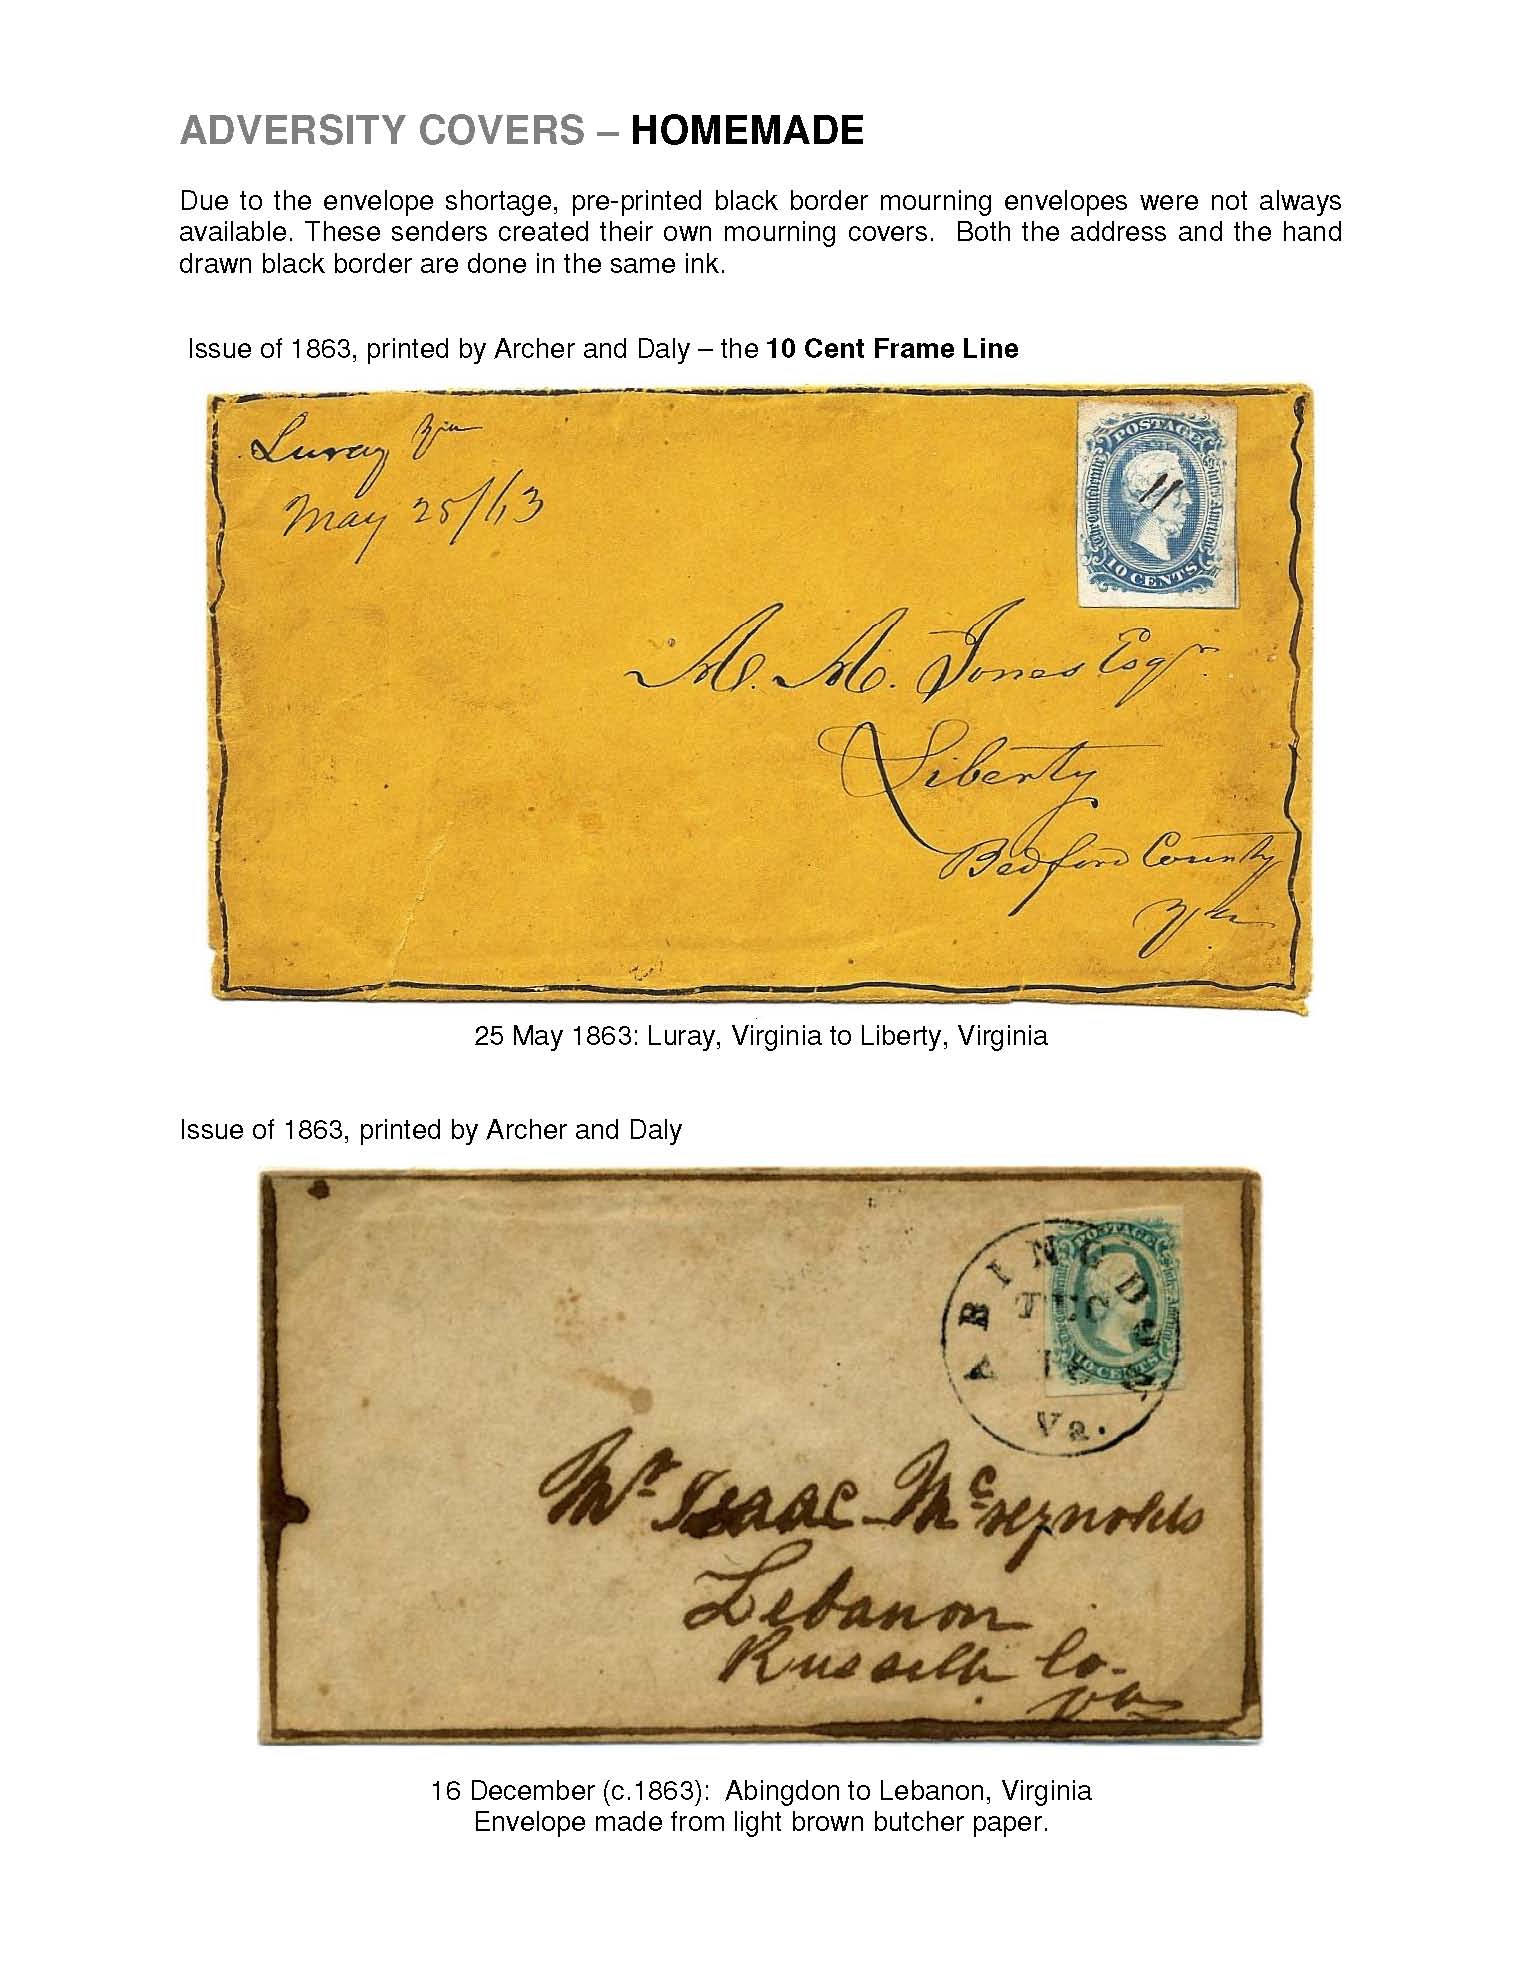 ADVERSITY COVERS – HOMEMADE
Due to the envelope shortage, pre-printed black border mourning envelopes were not always
available. These senders created their own mourning covers. Both the address and the hand
drawn black border are done in the same ink.
Issue of 1863, printed by Archer and Daly – the 10 Cent Frame Line
Luray
May 25/63
POSTAGE
The Confederate States America
10 CENTS
M. M. Jones Esqr
Liberty
Bedford County
25 May 1863: Luray, Virginia to Liberty, Virginia
Issue of 1863, printed by Archer and Daly
ABINGDON
DEC
16
Va.
POSTAGE
10 CENTS
Mr Isaac Mcreynolds
Lebanon
Russell Co.
Va
16 December (c.1863): Abingdon to Lebanon, Virginia
Envelope made from light brown butcher paper.